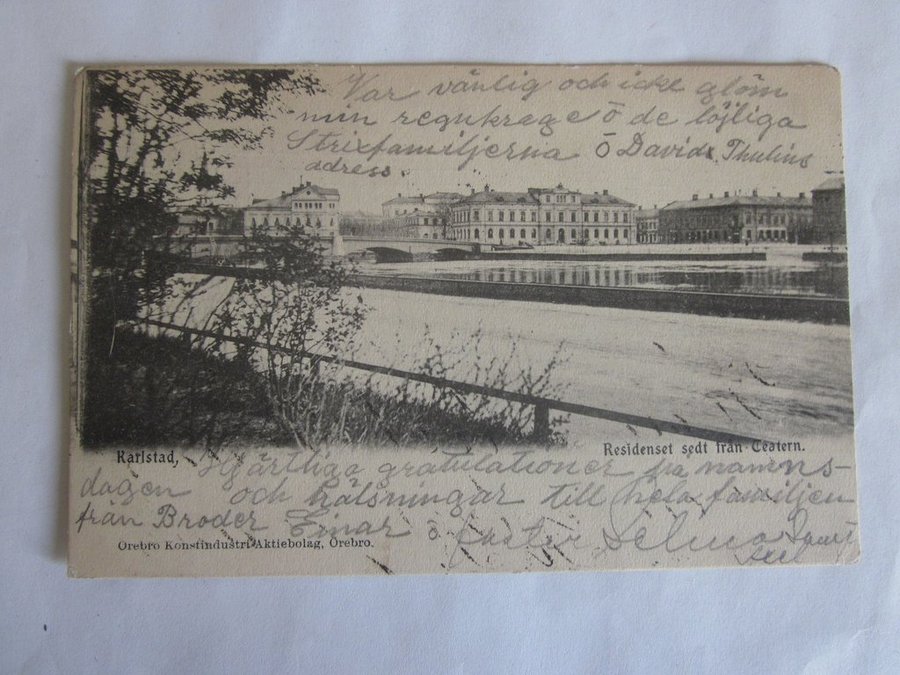 Var vänlig och icke glöm
min regnkrage ō de löjliga
Strixfamiljerna ō Davids Thulins
adress.
Karlstad,
Residenset sedt från Teatern.
Hjärtliga gratulationer på namns-
dagen och hälsningar till hela familjen
från Broder Einar ō faster Selma samt
Örebro Konstindustri Aktiebolag, Örebro.